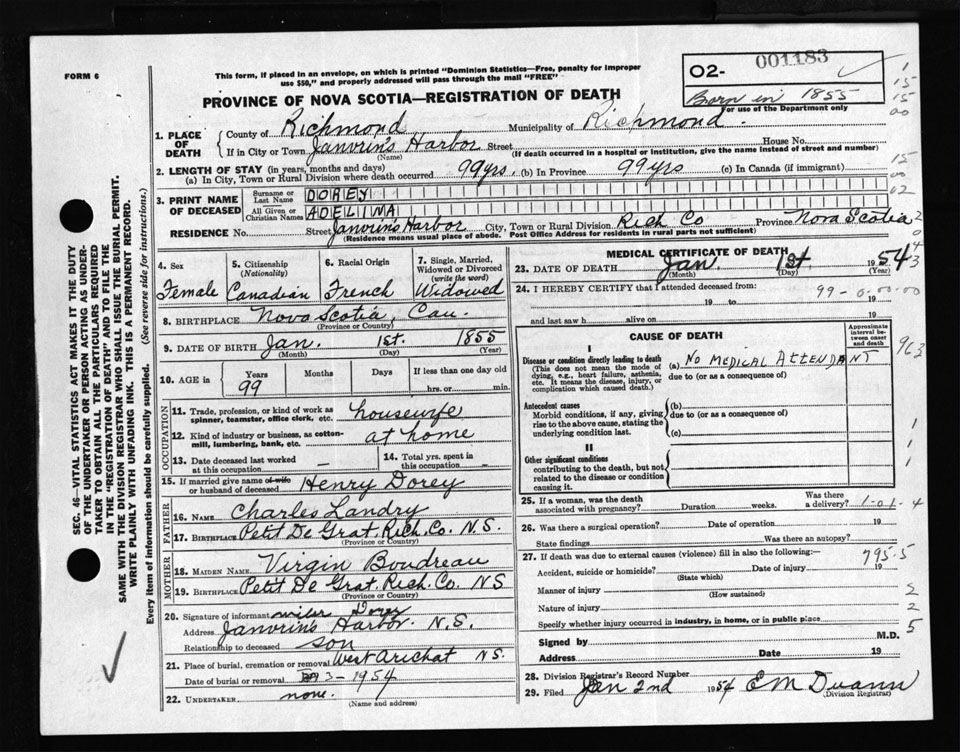 FORM 6
This form, if placed in an envelope, on which is printed "Dominion Statistics—Free, penalty for improper
use $50," and properly addressed will pass through the mail "FREE"
O2- 001183
Born in 1855
For use of the Department only
1
15
15
00
PROVINCE OF NOVA SCOTIA—REGISTRATION OF DEATH
1. PLACE OF DEATH
County of Richmond Municipality of Richmond.
If in City or Town Janvrin's Harbor Street House No.
(Name) (If death occurred in a hospital or institution, give the name instead of street and number)
2. LENGTH OF STAY (in years, months and days)
(a) In City, Town or Rural Division where death occurred 99yrs. (b) In Province 99yrs (c) In Canada (if immigrant)
15
00
02
3. PRINT NAME OF DECEASED
Surname or Last Name DOREY
All Given or Christian Names ADELIMA
RESIDENCE No. Street Janvrin's Harbor City, Town or Rural Division Rich Co Province Nova Scotia
(Residence means usual place of abode. Post Office Address for residents in rural parts not sufficient)
2
0
43
4. Sex
Female
5. Citizenship
(Nationality)
Canadian
6. Racial Origin
French
7. Single, Married,
Widowed or Divorced
(write the word)
Widowed
8. BIRTHPLACE Nova Scotia, Can.
(Province or Country)
9. DATE OF BIRTH Jan. 1st. 1855
(Month) (Day) (Year)
10. AGE in Years Months Days If less than one day old
99 hrs. or min.
OCCUPATION
11. Trade, profession, or kind of work as
spinner, teamster, office clerk, etc. housewife
12. Kind of industry or business, as cotton-
mill, lumbering, bank, etc. at home
13. Date deceased last worked
at this occupation –
14. Total yrs. spent in
this occupation –
15. If married give name of wife
or husband of deceased Henry Dorey
FATHER
16. NAME Charles Landry
17. BIRTHPLACE Petit De Grat. Rich. Co. N.S.
(Province or Country)
MOTHER
18. MAIDEN NAME Virgin Boudreau
19. BIRTHPLACE Petit De Grat. Rich. Co. N S
(Province or Country)
20. Signature of informant Dorey
Address Janvrin's Harbor. N.S.
Relationship to deceased son
21. Place of burial, cremation or removal West Arichat N S.
Date of burial or removal 3-1954
22. UNDERTAKER none.
(Name and address)
MEDICAL CERTIFICATE OF DEATH
23. DATE OF DEATH Jan. 1st 1954
(Month) (Day) (Year)
24. I HEREBY CERTIFY that I attended deceased from:
99-0.00.00
19 to 19
and last saw h alive on 19
CAUSE OF DEATH
Approximate
interval between
onset
and death
I
Disease or condition directly leading to death
(This does not mean the mode of
dying, e.g., heart failure, asthenia,
etc. It means the disease, injury, or
complication which caused death.)
(a) NO MEDICAL ATTENDANT
due to (or as a consequence of)
963
Antecedent causes
Morbid conditions, if any, giving
rise to the above cause, stating the
underlying condition last.
(b)
due to (or as a consequence of)
(c)
1
1
II
Other significant conditions
contributing to the death, but not
related to the disease or condition
causing it.
25. If a woman, was the death
associated with pregnancy? Duration weeks. Was there
a delivery? 1-01-4
26. Was there a surgical operation? Date of operation 19
State findings Was there an autopsy?
27. If death was due to external causes (violence) fill in also the following:—
795.5
Accident, suicide or homicide? Date of injury 19
(State which)
Manner of injury
(How sustained)
2
Nature of injury
2
Specify whether injury occurred in industry, in home, or in public place
5
Signed by M.D.
Address Date 19
28. Division Registrar's Record Number
29. Filed Jan 2nd 1954 E M Duann
(Division Registrar)
SEC. 46—VITAL STATISTICS ACT MAKES IT THE DUTY
OF THE UNDERTAKER OR PERSON ACTING AS UNDER-
TAKER TO OBTAIN ALL THE PARTICULARS REQUIRED
IN THE "REGISTRATION OF DEATH" AND TO FILE THE
SAME WITH THE DIVISION REGISTRAR WHO SHALL ISSUE THE BURIAL PERMIT.
WRITE PLAINLY WITH UNFADING INK. THIS IS A PERMANENT RECORD.
Every item of information should be carefully supplied. (See reverse side for instructions.)